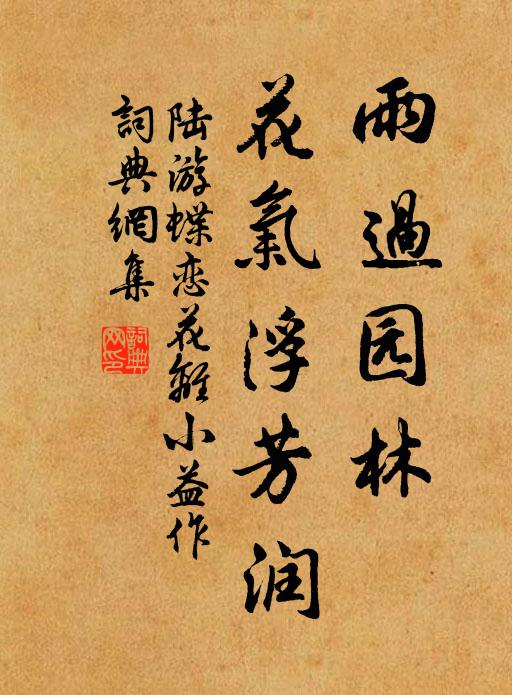 雨過园林
花氣浮芳润
陆游蝶恋花離小益作
詞典網集
詞典
网印